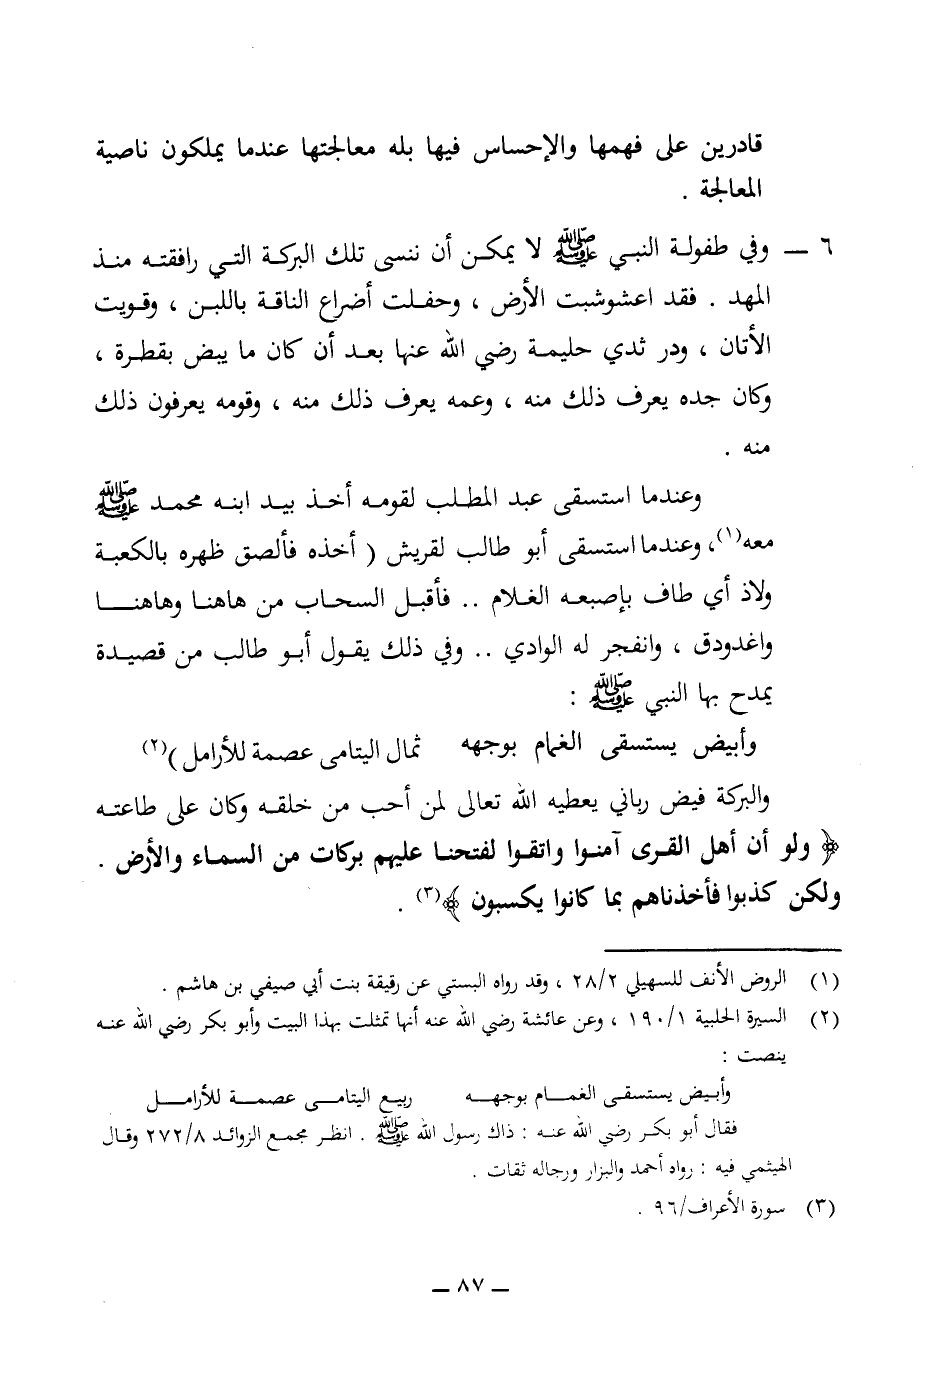 قادرين على فهمها والإحساس فيها بله معالجتها عندما يملكون ناصية
المعالجة .
٦ ــ وفي طفولة النبي ﷺ لا يمكن أن ننسى تلك البركة التي رافقته منذ
المهد . فقد اعشوشبت الأرض ، وحفلت أضراع الناقة باللبن ، وقويت
الأتان ، ودر ثدي حليمة رضي الله عنها بعد أن كان ما يبض بقطرة ،
وكان جده يعرف ذلك منه ، وعمه يعرف ذلك منه ، وقومه يعرفون ذلك
منه .
وعندما استسقى عبد المطلب لقومه أخذ بيد ابنه محمد ﷺ
معه(١)، وعندما استسقى أبو طالب لقريش ( أخذه فألصق ظهره بالكعبة
ولاذ أي طاف بإصبعه الغلام .. فأقبل السحاب من هاهنا وهاهنا
واغدودق ، وانفجر له الوادي .. وفي ذلك يقول أبو طالب من قصيدة
يمدح بها النبي ﷺ :
وأبيض يستسقى الغمام بوجهه ثمال اليتامى عصمة للأرامل )(٢)
والبركة فيض رباني يعطيه الله تعالى لمن أحب من خلقه وكان على طاعته
﴿ ولو أن أهل القرى آمنوا واتقوا لفتحنا عليهم بركات من السماء والأرض .
ولكن كذبوا فأخذناهم بما كانوا يكسبون ﴾(٣) .
(١) الروض الأنف للسهيلي ٢٨/٢ ، وقد رواه البستي عن رقيقة بنت أبي صيفي بن هاشم .
(٢) السيرة الحلبية ١٩٠/١ ، وعن عائشة رضي الله عنه أنها تمثلت بهذا البيت وأبو بكر رضي الله عنه
ينصت :
وأبيض يستسقى الغمام بوجهه ربيع اليتامى عصمة للأرامل
فقال أبو بكر رضي الله عنه : ذاك رسول الله ﷺ . انظر مجمع الزوائد ٢٧٢/٨ وقال
الهيثمي فيه : رواه أحمد والبزار ورجاله ثقات .
(٣) سورة الأعراف/٩٦ .
ــ ٨٧ ــ